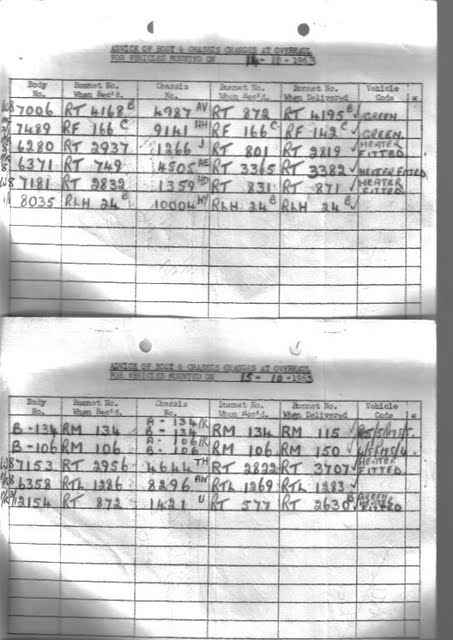 ADVICE OF BODY & CHASSIS CHANGES AT OVERHAUL
FOR VEHICLES MOUNTED ON 14-10-1963
Body No. Bonnet No. When Rec'd. Chassis No. Bonnet No. When Rec'd. Bonnet No. When Delivered Vehicle Code *
W8 7006 RT 4168 B 4987 AV RT 872 RT 4195 B ✓ GREEN
7489 RF 166 C 9141 NH RF 166 C RF 142 C ✓ GREEN
6280 RT 2937 1266 J RT 801 RT 2819 ✓ HEATER FITTED
6371 RT 749 4505 AE RT 3365 RT 3382 ✓ HEATER FITTED
W8 7181 RT 2832 1359 RT 831 RT 871 ✓ HEATER FITTED
8035 RLH 24 B 10004 RLH 24 B RLH 24 B ✓
ADVICE OF BODY & CHASSIS CHANGES AT OVERHAUL
FOR VEHICLES MOUNTED ON 15-10-1963
Body No. Bonnet No. When Rec'd. Chassis No. Bonnet No. When Rec'd. Bonnet No. When Delivered Vehicle Code *
B-134 RM 134 A-134 B-134 RM 134 RM 115 ✓
B-106 RM 106 A-106 B-106 RM 106 RM 150 ✓
W8 7153 RT 2956 4644 TH RT 2822 RT 3707 ✓ HEATER FITTED
6358 RTL 1286 8296 RTL 1269 RTL 1283 ✓
12154 RT 872 1421 U RT 577 RT 2630 B FITTED